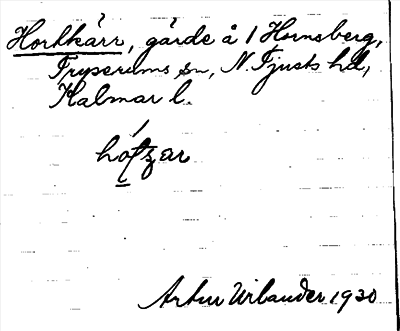 Hortkärr, gärde å 1 Hornsberg,
Tryserums sn, N. Tjusts hd,
Kalmar l.
Artur Wilander 1930